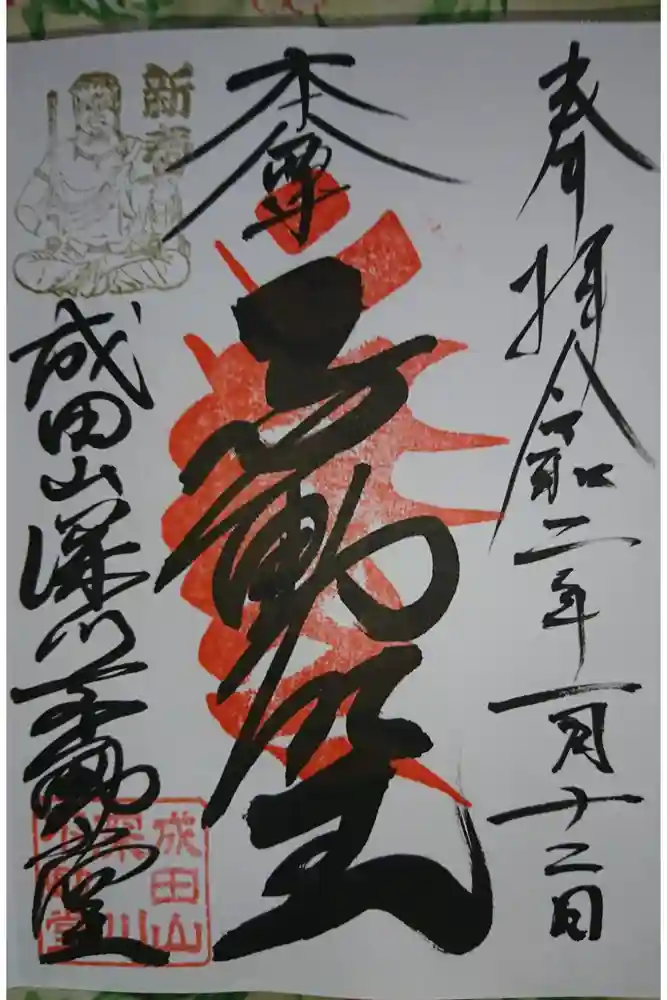 奉拝
令和二年一月十二日
本尊
不動明王
新春
成田山深川不動堂
成田山
深川
不動堂